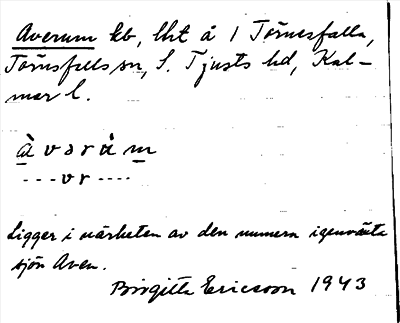 Averum kb, lht å 1 Törnesfalla,
Törnsfalls sn, S. Tjusts hd, Kal-
mar l.
a᷅̀ v ə r ù m
---vr----
Ligger i närheten av den numera igenväxta
sjön Aven.
Birgitta Ericsson 1943